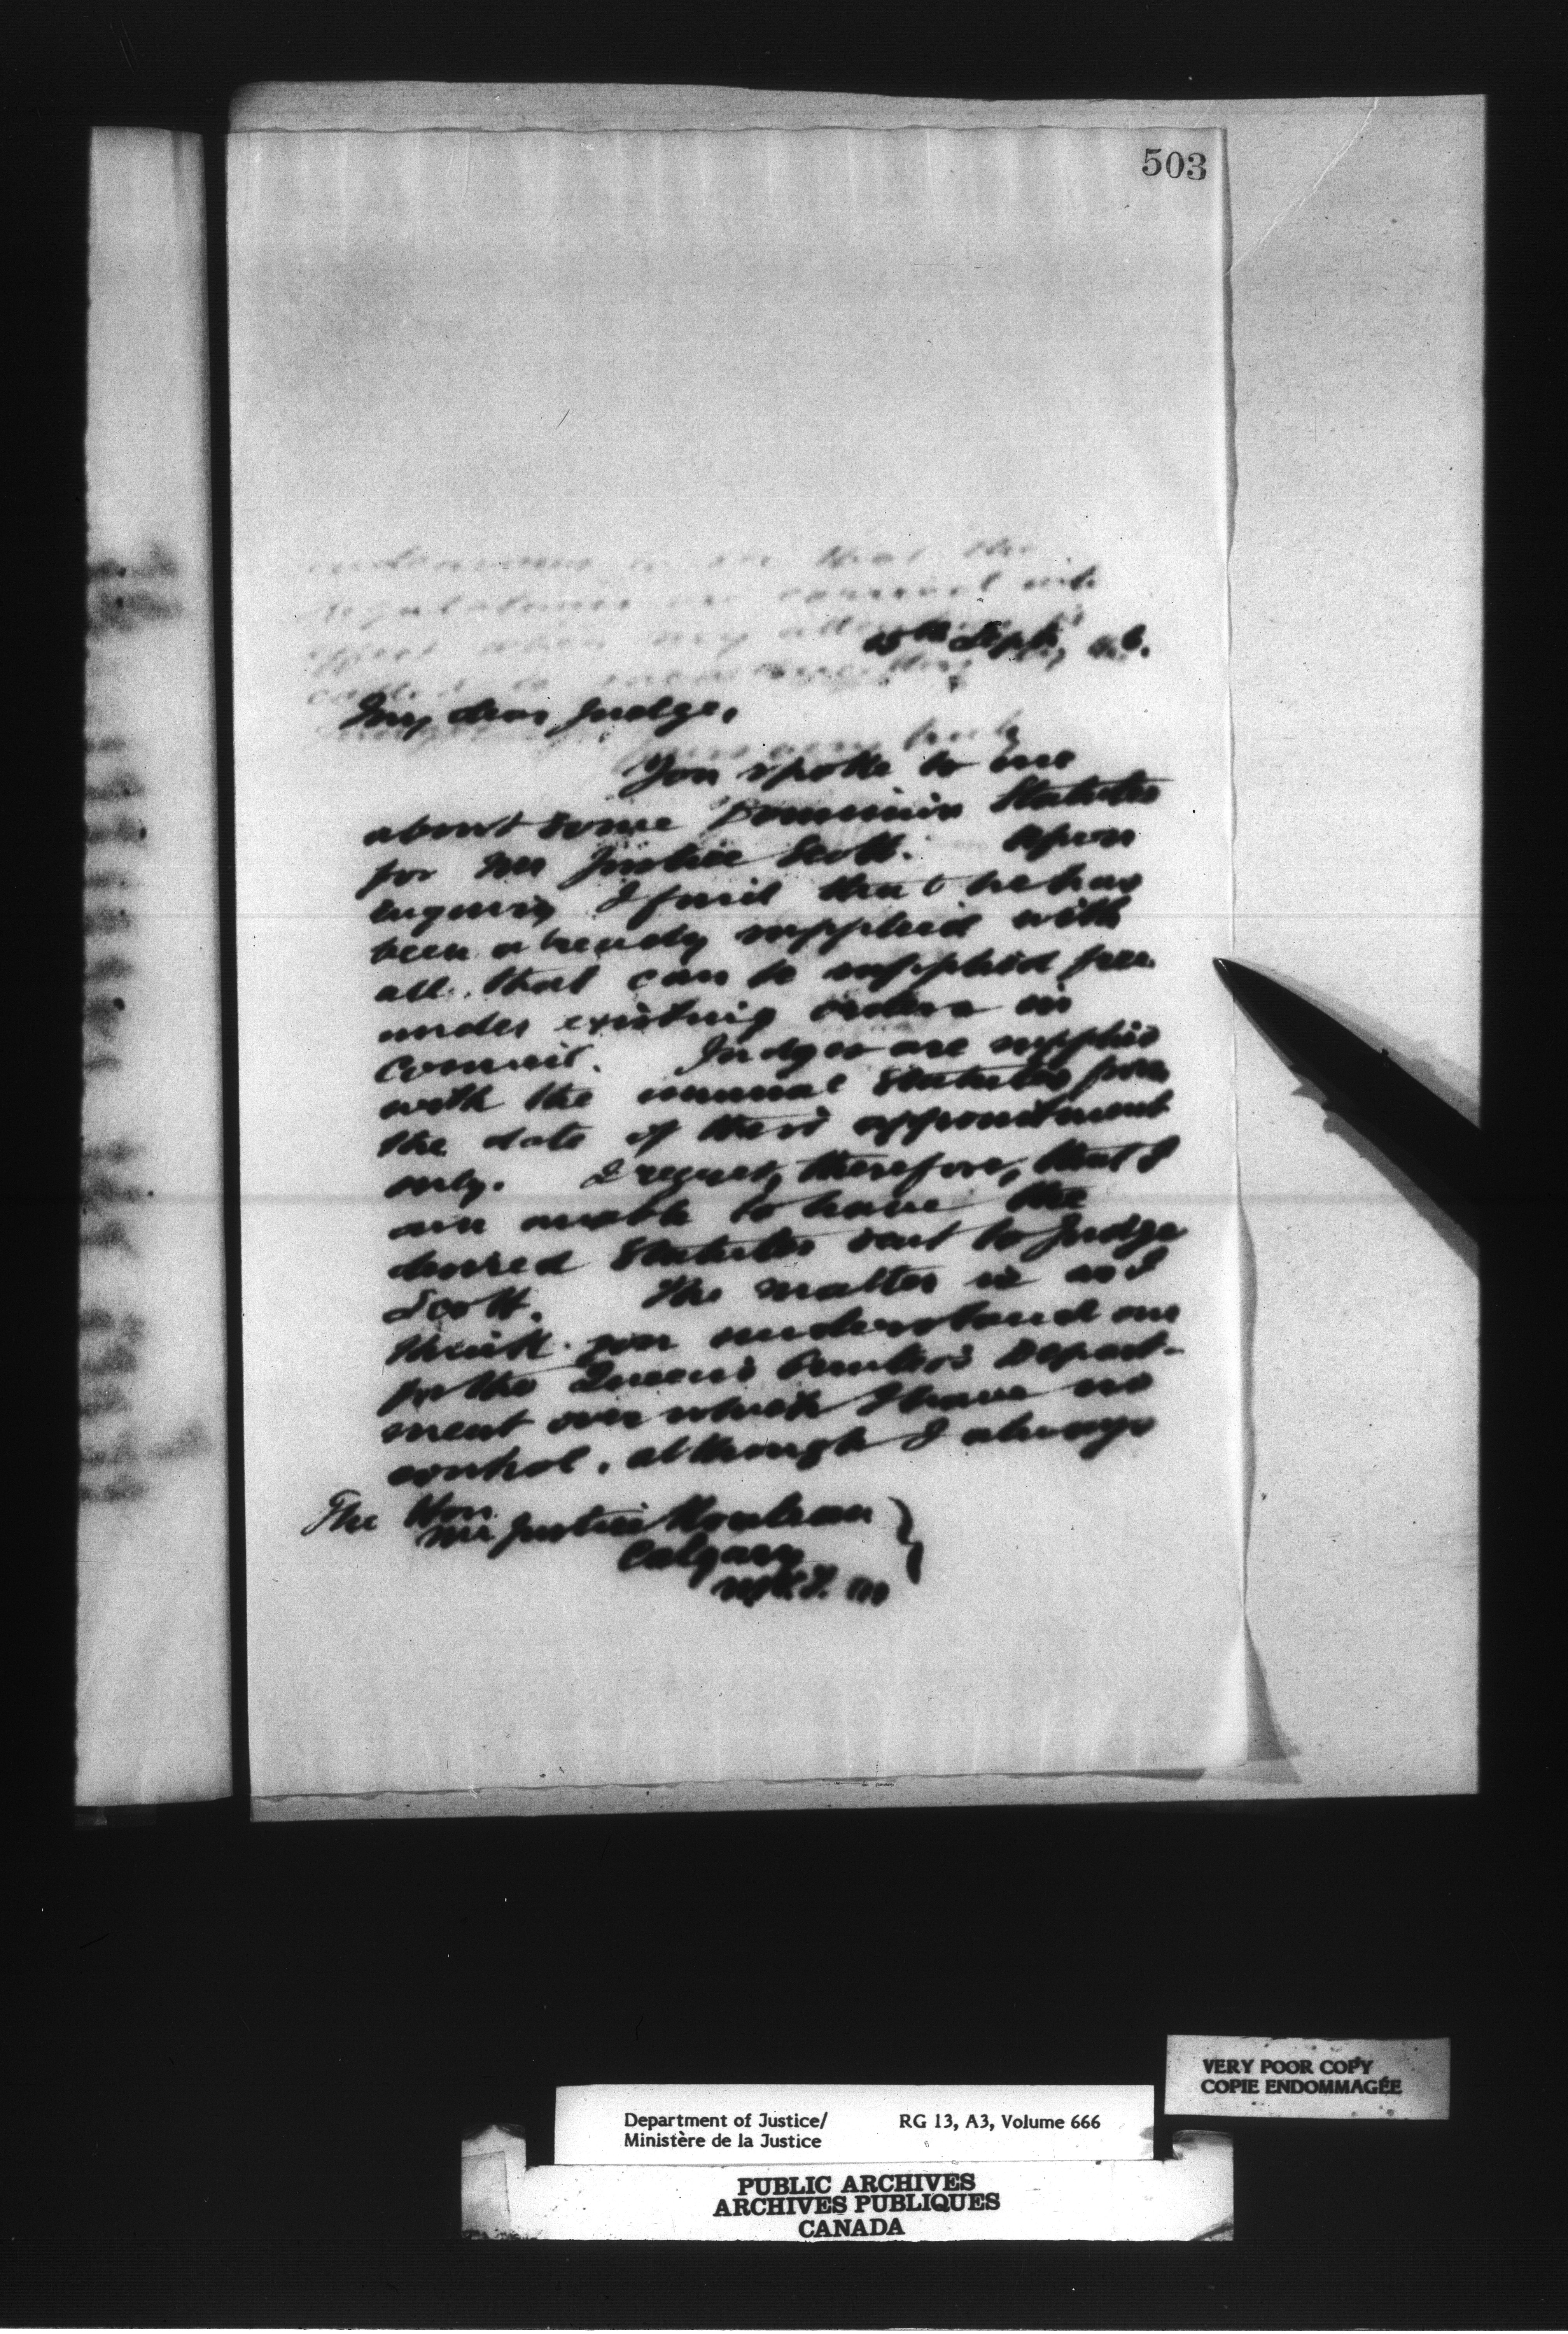 503
15th Sept., 6.
My dear Judge,
You spoke to me
about some Dominion Statutes
for Mr Justice Scott. Upon
enquiry I find that he has
been already supplied with
all that can be supplied free
under existing orders in
Council. Judges are supplied
with the annual Statutes from
the date of their appointment
only. I regret, therefore, that I
am unable to have the
desired Statutes sent to Judge
Scott. The matter is as I
think you understand one
for the Queen's Printer's Depart-
ment over which I have no
control, although I always
The Hon.
Mr Justice Rouleau
Calgary
N.W.T.
VERY POOR COPY
COPIE ENDOMMAGÉE
Department of Justice/ RG 13, A3, Volume 666
Ministère de la Justice
PUBLIC ARCHIVES
ARCHIVES PUBLIQUES
CANADA